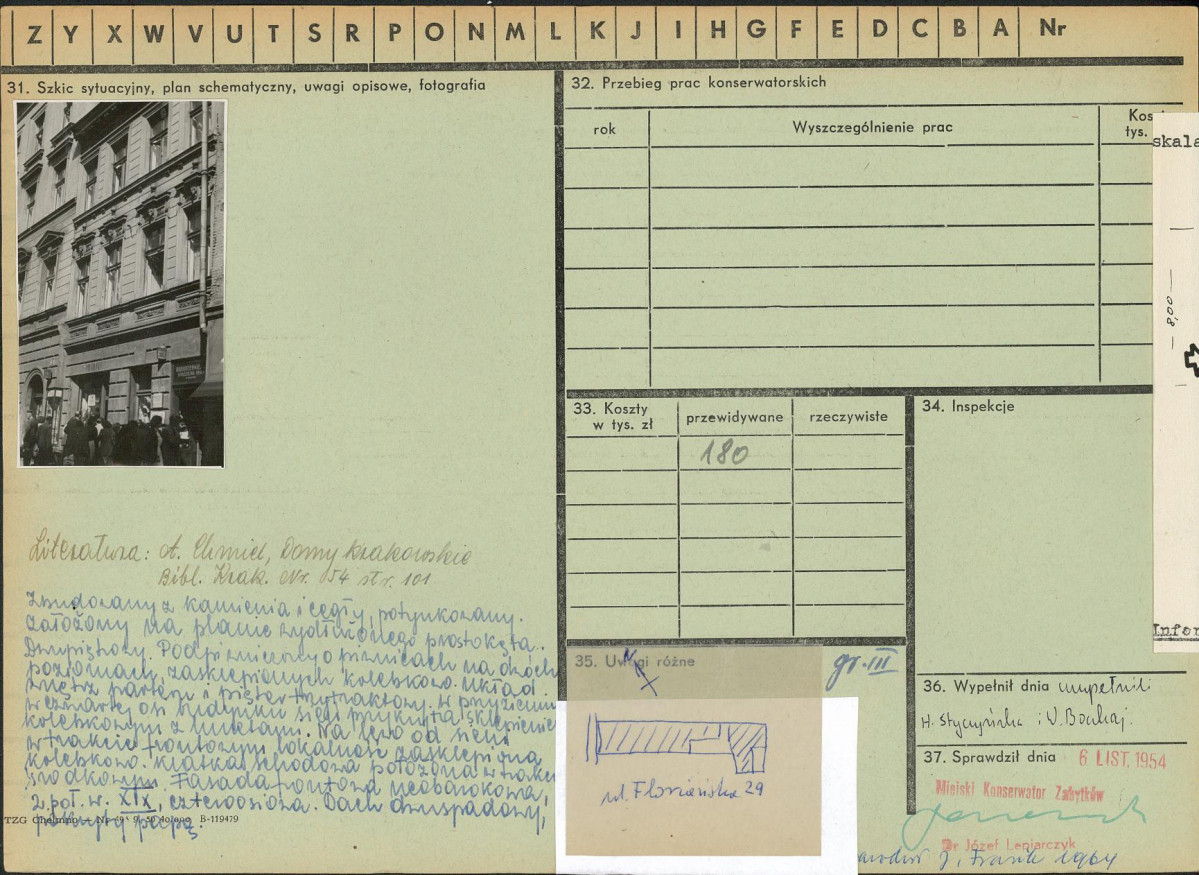 Z Y X W V U T S R P O N M L K J I H G F E D C B A Nr
31. Szkic sytuacyjny, plan schematyczny, uwagi opisowe, fotografia
Literatura: A. Chmiel, Domy krakowskie
Bibl. Krak. Nr. 54 str. 101
Zbudowany z kamienia i cegły, potynkowany.
Założony na planie wydłużonego prostokąta.
Dwupiętrowy. Podpiwniczony o piwnicach na dwóch
poziomach, zasklepionych kolebkowo. Układ
wnętrz parteru i pięter trzytraktowy. W przyziemiu
w czwartej osi budynku sień przykryta sklepieniem
kolebkowym z lunetami. Na lewo od sieni
w trakcie frontowym lokalność zasklepiona
kolebkowo. Klatka schodowa położona w trakcie
środkowym. Fasada frontowa neobarokowa,
z poł. w. XIX, czteroosiowa. Dach dwuspadowy,
pokryty papą.
TZG Chełmno — 40.000 B-119479
32. Przebieg prac konserwatorskich
rok
Wyszczególnienie prac
tys.
skala
8,00
33. Koszty
w tys. zł
przewidywane
rzeczywiste
180
34. Inspekcje
Infor
35. Uwagi różne
gr. III
N
ul. Floriańska 29
36. Wypełnił dnia wypełnili
H. Styczyńska i W. Bochnaj.
37. Sprawdził dnia 6 LIST. 1954
Miejski Konserwator Zabytków
Dr Józef Lepiarczyk
J. Frank 1964